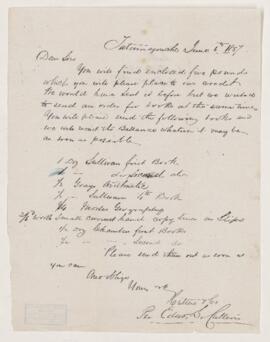 June 6th 1857
Dear Sir
You will find enclosed five pounds
which you will please place to our credit
We would have sent it before but we wished
to send an order for books at the same time
You will please send the following books and
we will remit the Ballance whatever it may be
as soon as possible
1 Doz Sullivan first Book
1 — — do Second do
½ Grays Arithmetic
Sullivans 4th Book
Geography
worth Small current hand copy lines on Slips
½ Doz Chambers first Books
½ — — Second do
Please send them as soon as
you can
And Oblige
Yours &c